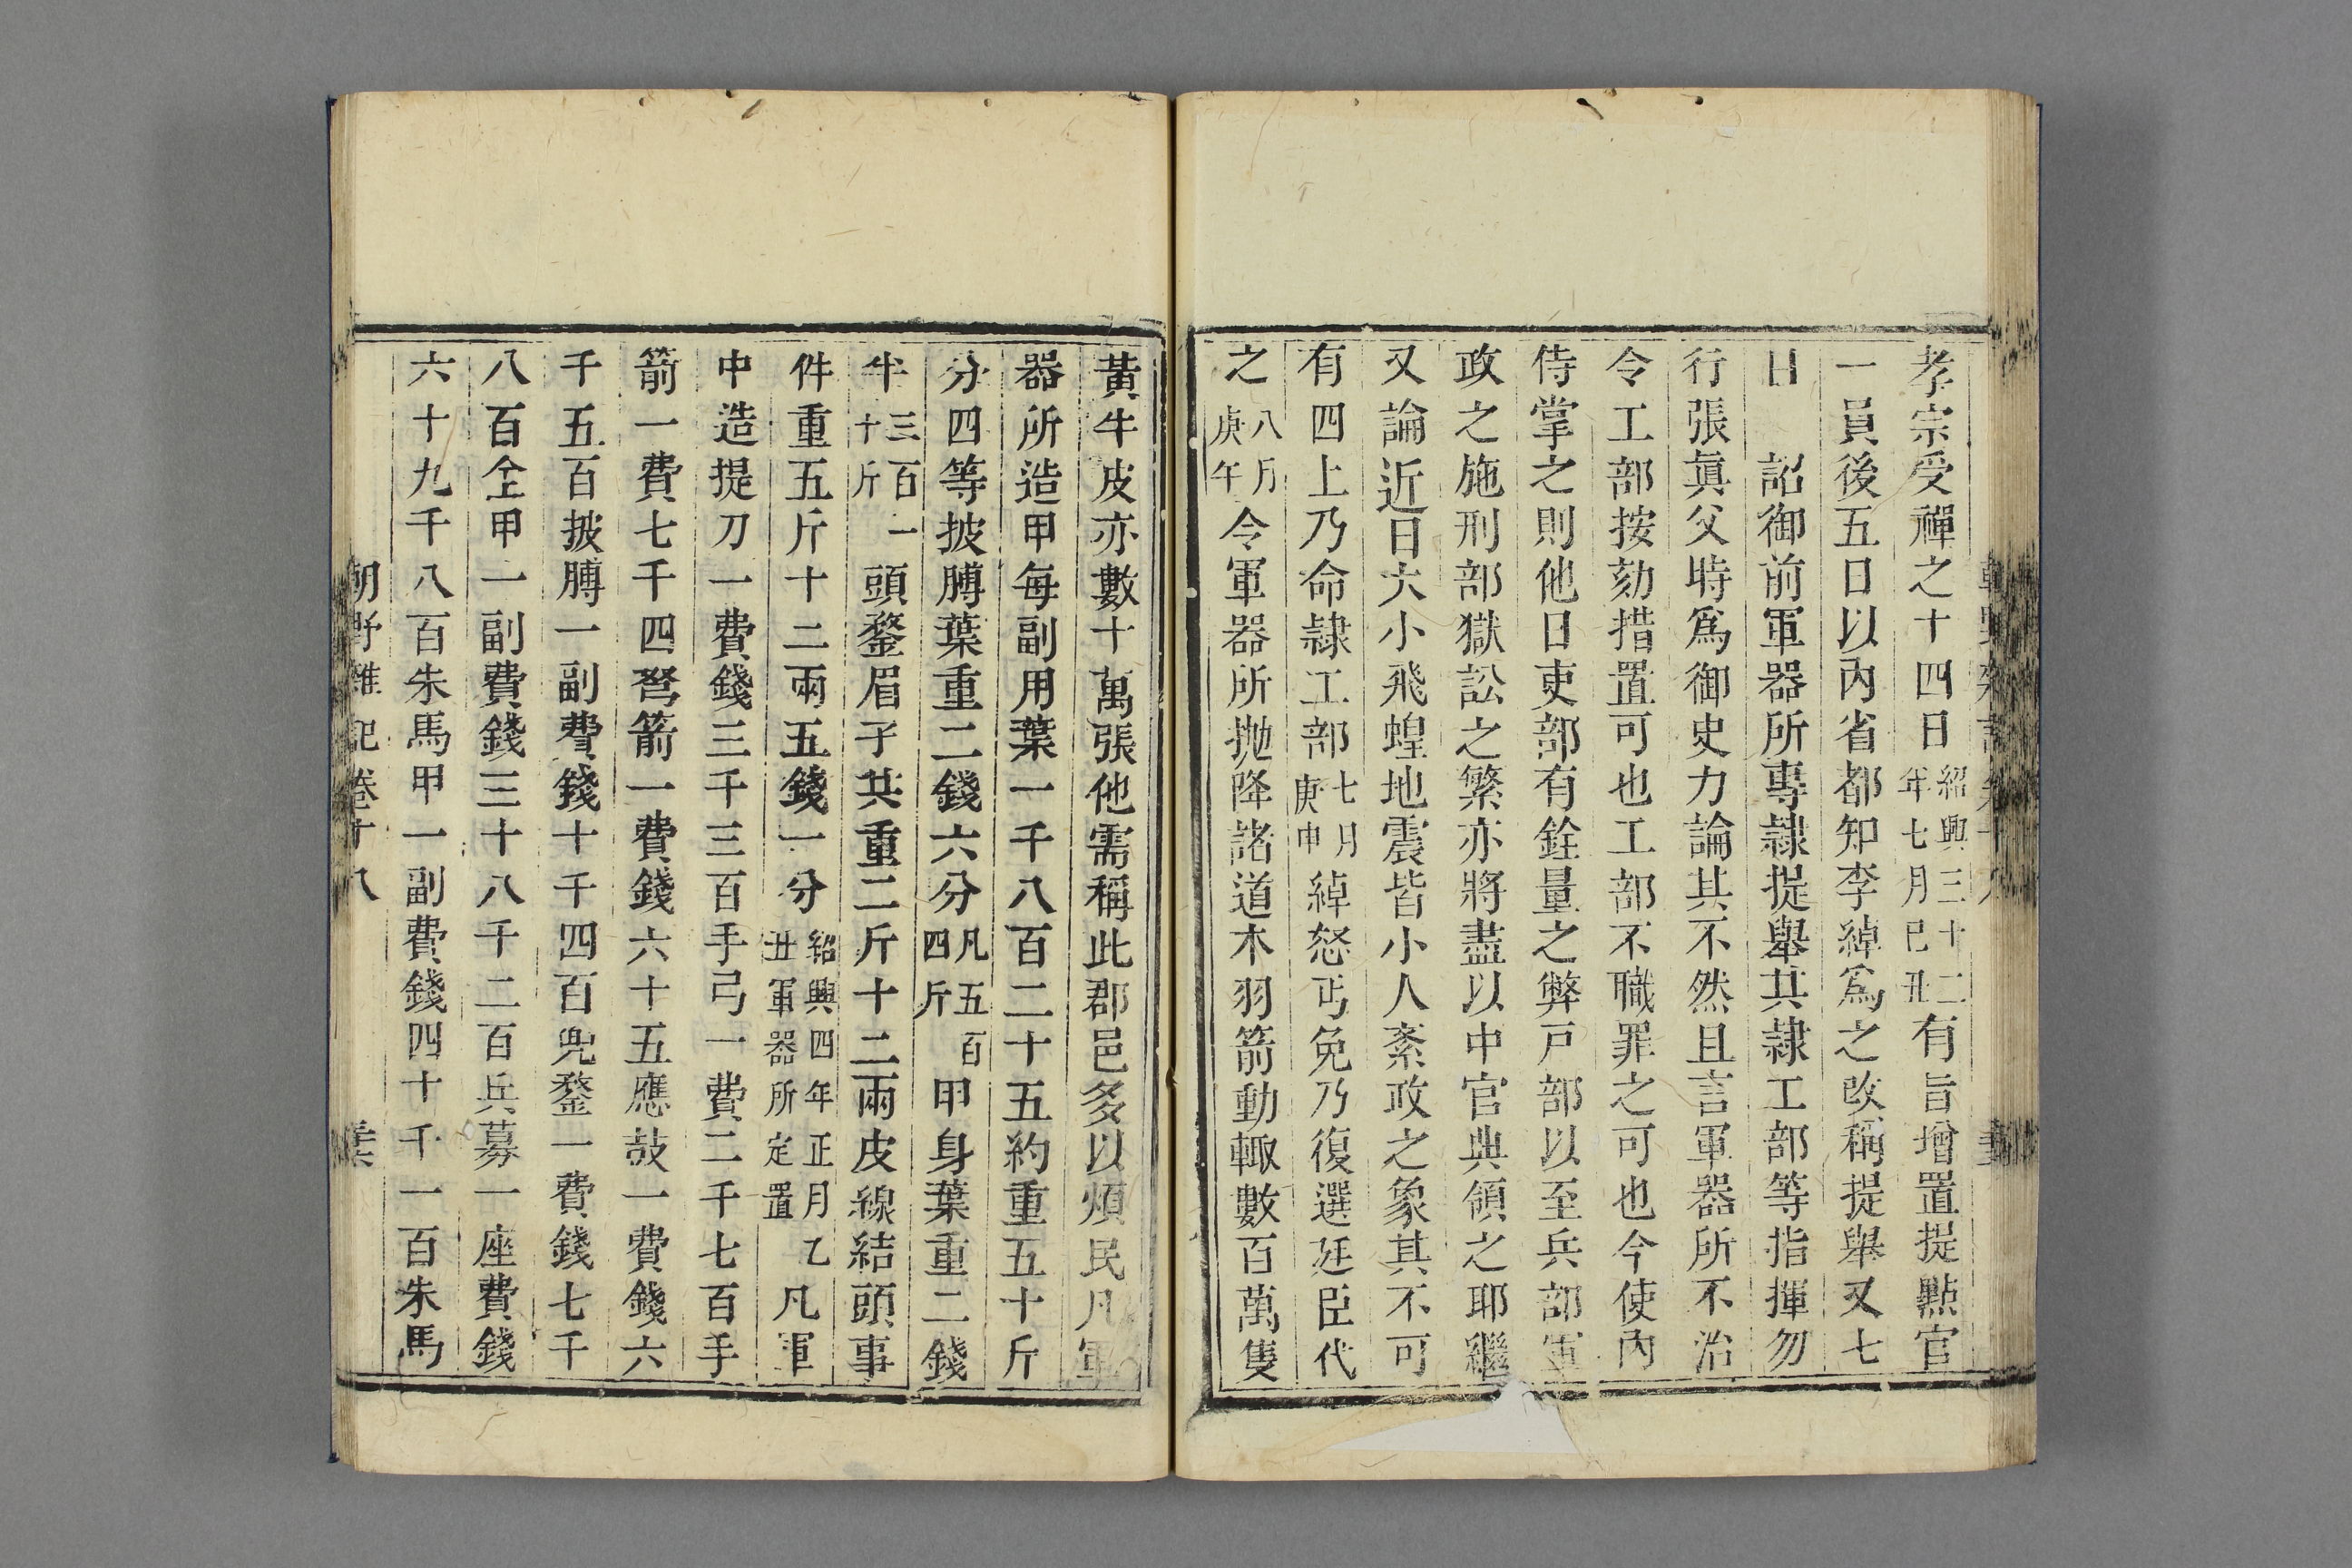 孝宗受禪之十四日紹興三十二年七月己丑有旨增置提點官
一員後五日以內省都知李綽爲之改稱提舉又七
日　詔御前軍器所專隷提舉其隷工部等指揮勿
行張眞父時爲御史力論其不然且言軍器所不治
令工部按劾措置可也工部不職罪之可也今使內
侍掌之則他日吏部有銓量之弊戸部以至兵部軍
政之施刑部獄訟之繁亦將盡以中官典領之耶繼
又論近日大小飛蝗地震皆小人紊政之象其不可
有四上乃命隷工部七月庚申綽怒丐免乃復選廷臣代
之八月庚午令軍器所抛降諸道木羽箭動輙數百萬隻
黃牛皮亦數十萬張他需稱此郡邑多以煩民凡軍
器所造甲每副用葉一千八百二十五約重五十斤
分四等披膊葉重二錢六分凡五百四斤甲身葉重二錢
半三百一十斤頭鍪眉子共重二斤十二兩皮線結頭事
件重五斤十二兩五錢一分紹興四年正月乙丑軍器所定置凡軍
中造提刀一費錢三千三百手弓一費二千七百手
箭一費七千四弩箭一費錢六十五應鼓一費錢六
千五百披膊一副費錢十千四百兜鍪一費錢七千
八百仝甲一副費錢三十八千二百兵募一座費錢
六十九千八百朱馬甲一副費錢四十千一百朱馬
朝野雜記卷十八